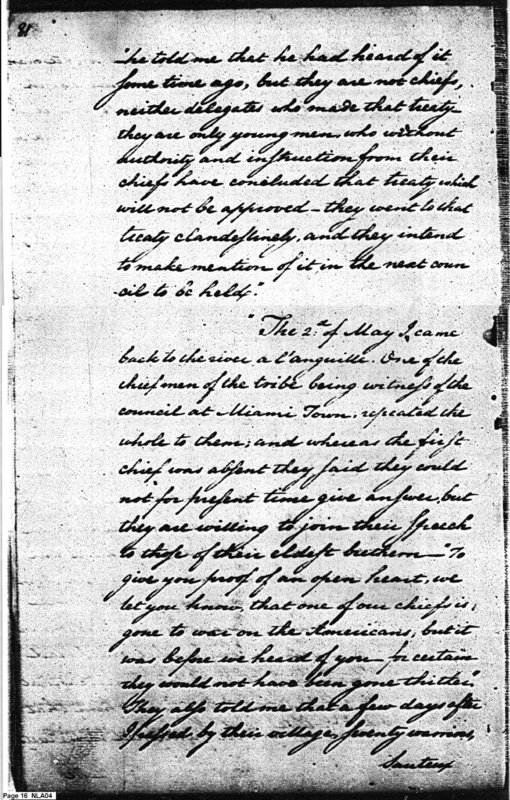 81
"he told me that he had heard of it
some time ago, but they are not chiefs,
neither delegates who made that treaty
they are only young men who without
authority and instruction from their
chiefs have concluded that treaty which
will not be approved – they went to that
treaty clandestinely, and they intend
to make mention of it in the next coun
-cil to be held."
"The 2.d of May I came
back to the river a l'anguille. One of the
chief men of the tribe being witness of the
council at Miami Town, repeated the
whole to them; and whereas the first
chief was absent they said they could
not for present time give answer, but
they are willing to join their speech
to those of their eldest brethern – "To
give you proof of an open heart, we
let you know, that one of our chiefs is,
gone to war on the Americans, but it
was before we heard of you – for certain
they would not have been gone thither."
They also told me that a few days after
I passed by their village, seventy warriors,
Sauteux
Page 16 NLA04